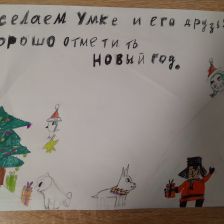 СЕЛАЕМ УМКЕ И ЕГО ДРУЗЬ
ХОРОШО ОТМЕТИТЬ
НОВЫЙ ГОД.